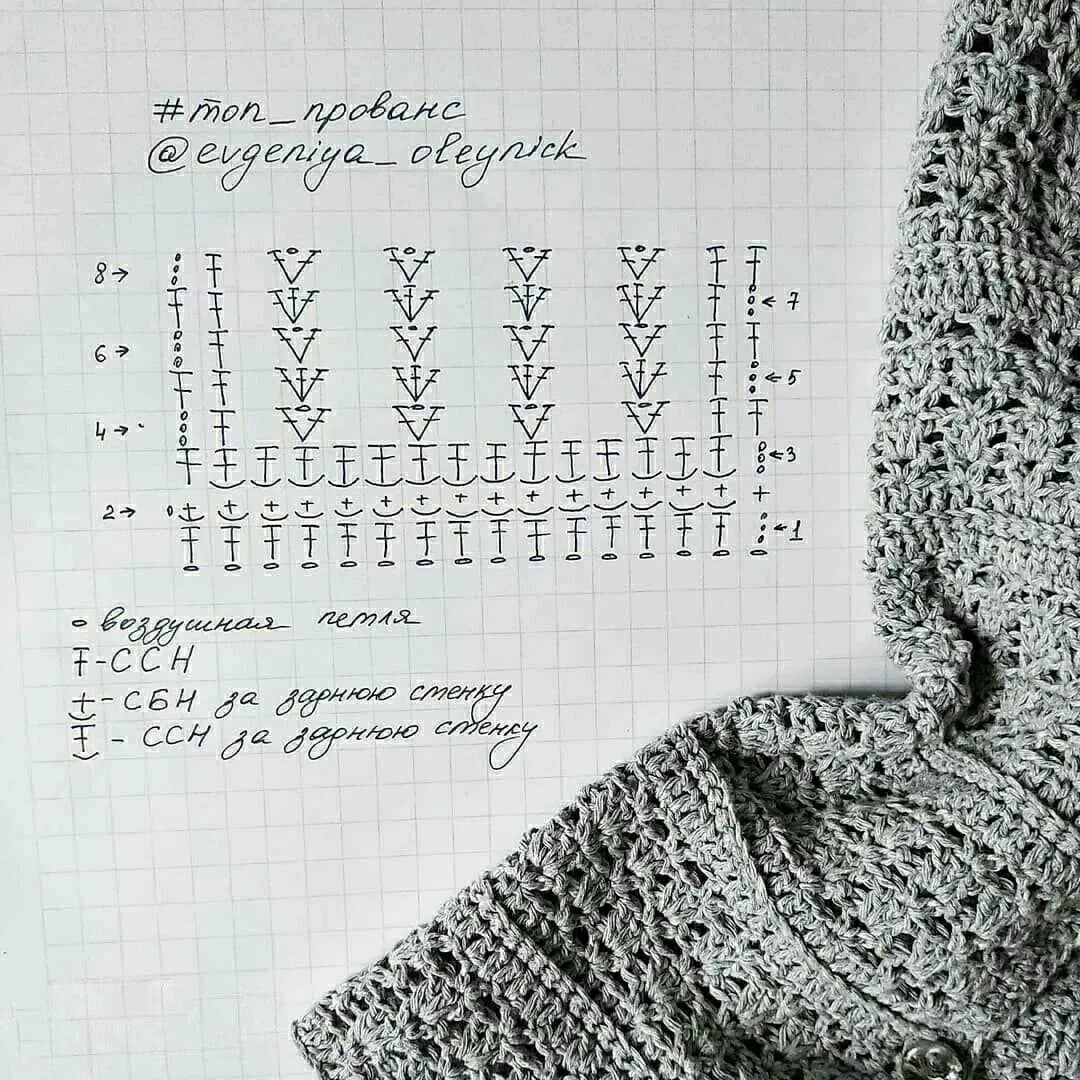 #топ_прованс
@evgeniya_oleynick
8→
← 7
6→
← 5
4→
← 3
2→
← 1
воздушная петля
- ССН
- СБН за заднюю стенку
- ССН за заднюю стенку